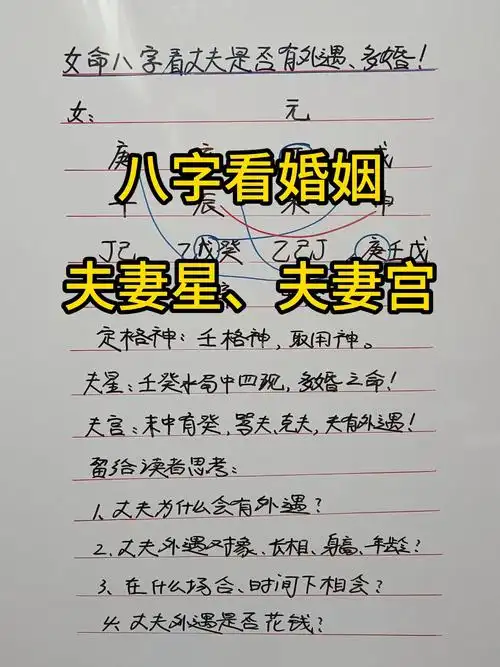 女命八字看丈夫是否有外遇、多婚！
女： 元
庚
八字看婚姻
辰
丁己 乙戊癸 乙己丁 庚壬戊
夫妻星、夫妻宫
定格神：壬格神，取用神。
夫星：壬癸水局中四现，多婚之命！
夫宫：未中有癸，骂夫、克夫，夫有外遇！
留给读者思考：
1、丈夫为什么会有外遇？
2、丈夫外遇对象、长相、身高、年龄？
3、在什么场合、时间下相会？
4、丈夫外遇是否花钱？